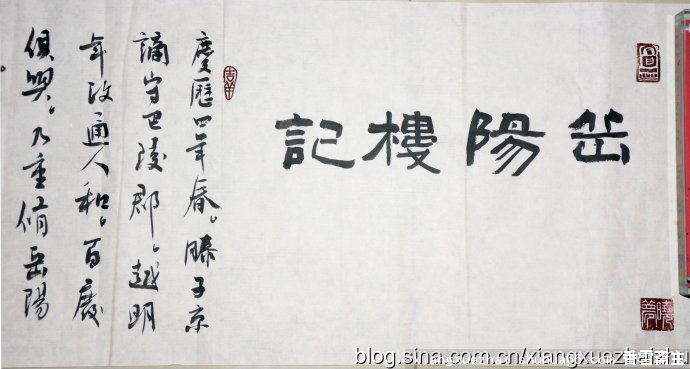 岳陽樓記
慶歷四年春。滕子京
謫守巴陵郡。越明
年政通人和。百廢
俱興。乃重脩岳陽
blog.sina.com.cn/xiangxuezhaizhu
香雪斋主